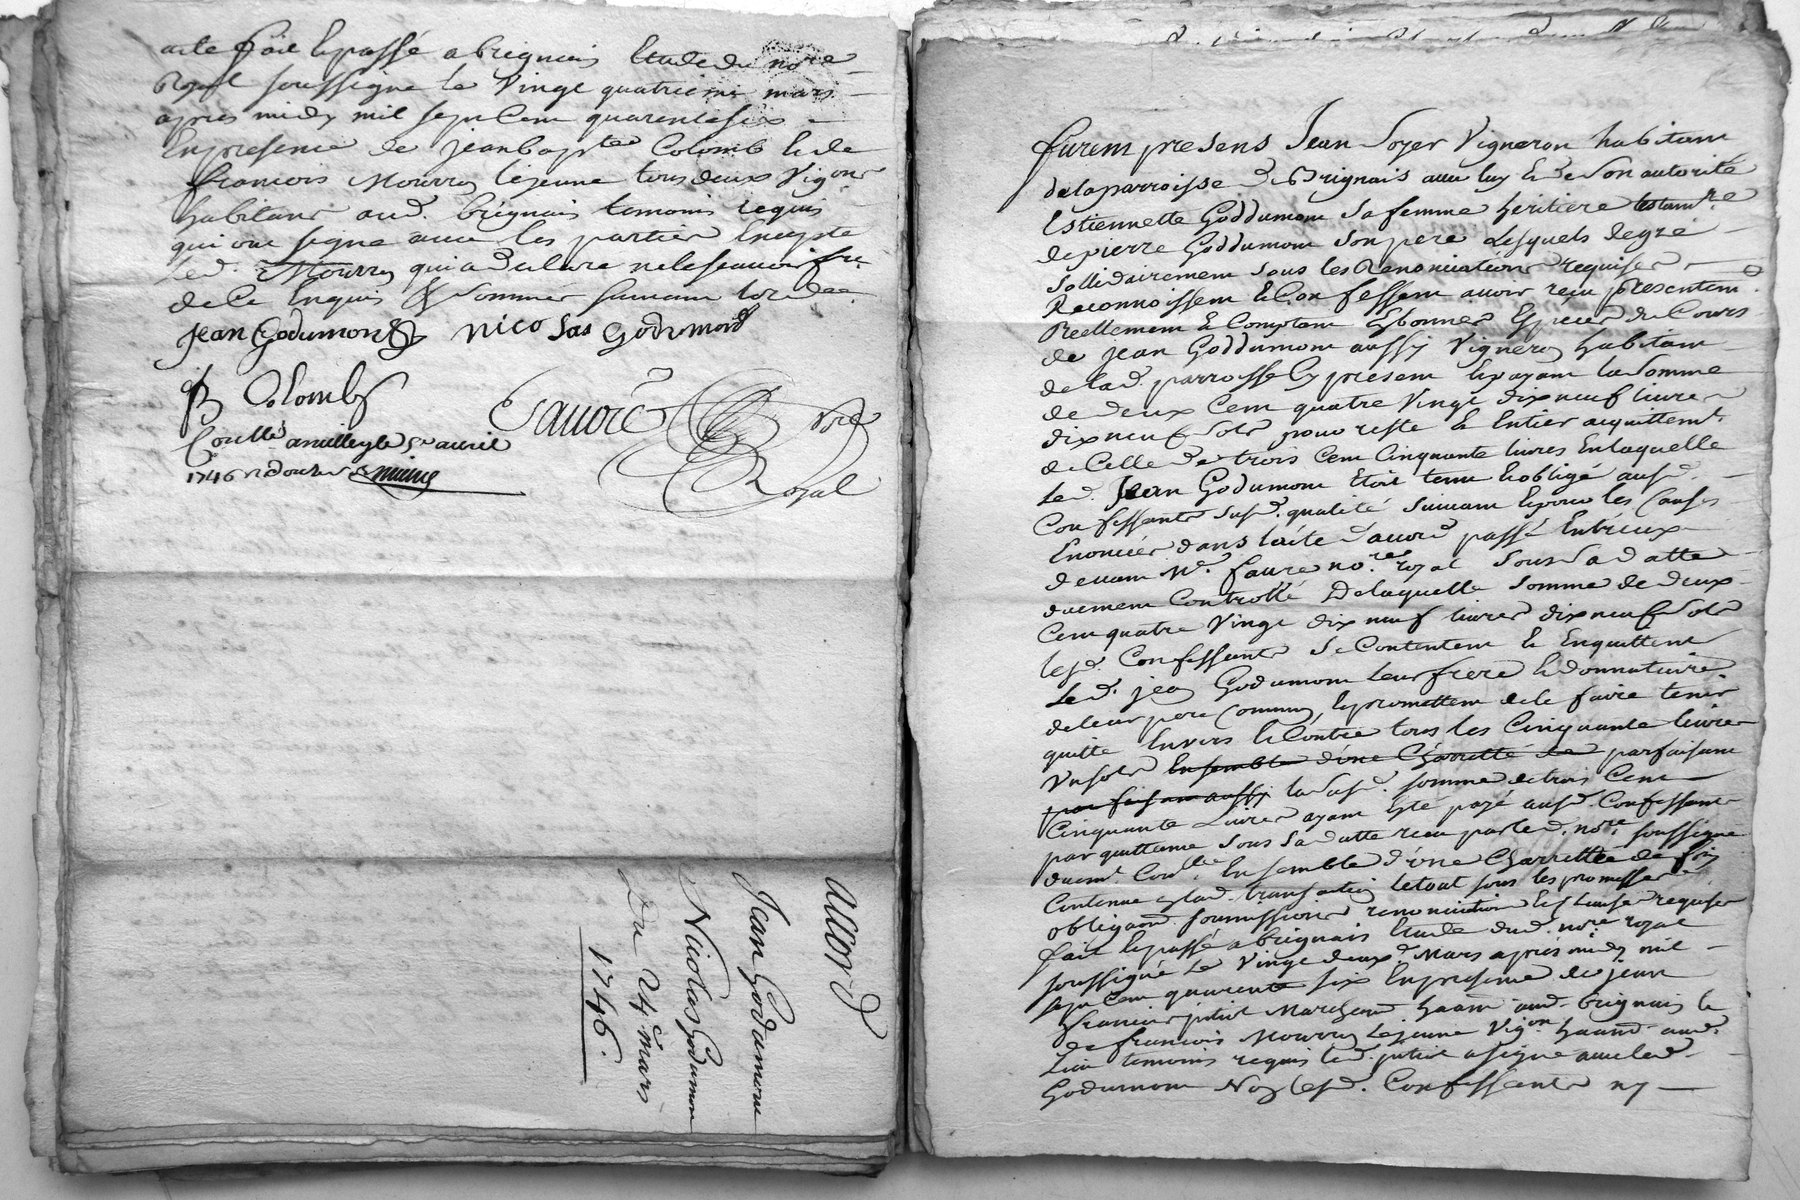 acte fait et passé a brignais Etude du no.re
Royal soussigné le Vingt quatrieme mars
apres midy mil sept Cent quarente six
En presence de jean bapte Colomb et de
francois Mourron lejeune tous deux Vigons
habitans aud. brignais temoins requis
qui ont signé avec les parties Excepté
led. Mourron qui a declaré ne le scavoir fre.
de ce Enquis & sommés suivant lord.ce
Jean Godumond nicolas Godumond
JB Colomb
faure No.re
Royal
Conllé a millery le 5e avril
1746 R douze s.
accord
Jean Godumont
Nicolas Godumont
Du 24e mars
1746.
furent presens Jean Soyer Vigneron habitant
de la parroisse de Brignais avec luy et de son autorité
Estiennette Goddumont sa femme heritiere testamre
de pierre Goddumont son pere Lesquels de gré
sollidairement sous les Renonciations requises
Reconnoissent et Confessent avoir reçu presentemt
Reellement et Comptant Es bonnes Especes du Cours
de jean Goddumont aussy Vigneron habitant
de lad. parroisse Cy present et payant la somme
de deux Cent quatre Vingt dix neuf livres
dix neuf sols pour reste et Entier acquittemt
de Celle de trois Cent Cinquante livres En laquelle
Led. Jean Godumont Etoit tenu et obligé ausd.
Confessants susd. qualité suivant et pour les Causes
Enoncées dans l'acte d'accord passé Entr'eux
devant Me. faure no.re royal sous sa datte
duement Controllé De laquelle somme de deux
Cent quatre Vingt dix neuf livres dix neuf sols
lesd. Confessants se Contentent et En quittent
Led. jean Godumont Leur frere et donnataire
de leur pere Commun et promettent de le faire tenir
quitte Envers et Contre tous les Cinquante livres
Un sols Ensemble d'une Charrettée de parfaisant
parfaisant aussy la susd. somme de trois Cent
Cinquante Livres ayant Eté payé ausd. Confessants
par quittance sous sa datte recu par led. no.re soussigné
duemt. Conllé Ensemble d'une Charrettée de foin
Contenue En lad. transaction le tout sous les promesses
obligaons soumissions renonciations et Clauses requises
fait et passé a brignais Etude dud. no.re royal
soussigné Le Vingt deuxe Mars apres midy mil
sept Cent quarente six En presence de jean
francois Marchand habant aud. brignais et
de francois Mourron Lejeune Vigon habant aud.
Lieu temoins requis led. a signé avec led.
Godumont Non lesd. Confessants ny